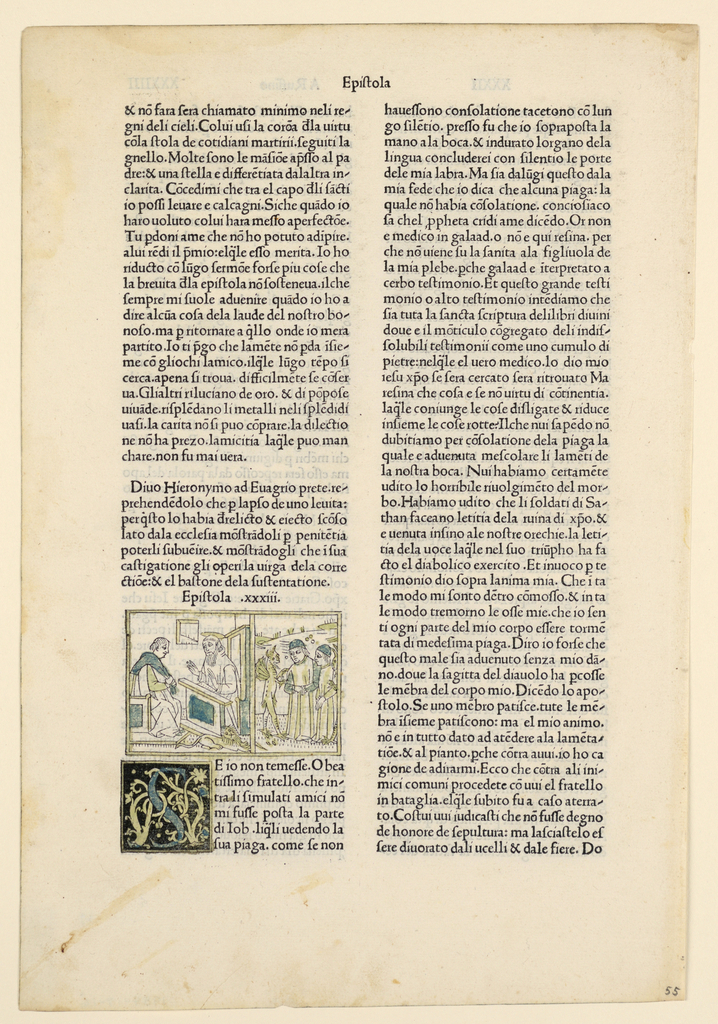 Epiſtola
& nõ fara ſera chiamato minimo neli re-
gni deli cieli.Colui uſi la corõa d̄la uirtu
cõla ſtola de cotidiani martirii.ſeguiti la
gnello.Molte ſono le mãſiõe ap̄ſſo al pa
dre:& una ſtella e differẽtiata dalaltra in-
clarita. Cõcedimi che tra el capo d̄li ſãcti
io poſſi leuare e calcagni.Siche quãdo io
haro uoluto colui hara meſſo aperfectõe.
Tu p̱doni ame che nõ ho potuto adĩpire.
alui rẽdi il p̄mio:elq̃le eſſo merita. Io ho
riducto cõ lũgo ſermõe forſe piu coſe che
la breuita d̄la epiſtola nõ ſoſteneua.ilche
ſempre mi ſuole aduenire quãdo io ho a
dire alcũa coſa dela laude del noſtro bo-
noſo.ma p̱ ritornare a q̃llo onde io mera
partito.Io ti p̄go che lamẽte nõ p̱da iſie-
me cõ gliochi lamico.ilq̃le lũgo tẽpo ſi
cerca.apena ſi troua. difficilmẽte ſe cõſer
ua.Glialtri riluciano de oro. & di põpoſe
uiuãde.riſplẽdano li metalli neli ſplẽdidi
uaſi.la carita nõ ſi puo cõprare.la dilectio
ne nõ ha prezo.lamicitia laq̃le puo man
chare.non fu mai uera.
Diuo Hieronymo ad Euagrio prete.re-
prehendẽdolo che p̱ lapſo de uno leuita:
per q̃ſto lo habia d̄relicto & eiecto ſcõſo
lato dala eccleſia mõſtrãdoli p̱ penitẽtia
poterli ſubuẽire.& mõſtrãdogli che ĩ ſua
caſtigatione gli operi la uirga dela corre
ctiõe:& el baſtone dela ſuſtentatione.
Epiſtola .xxxiii.
SE io non temeſſe.O bea
tiſſimo fratello.che in-
tra li ſimulati amici nõ
mi fuſſe poſta la parte
di Iob .liq̃li uedendo la
ſua piaga. come ſe non
haueſſono conſolatione tacetono cõ lun
go ſilẽtio. preſſo fu che io ſoprapoſta la
mano ala boca.& indurato lorgano dela
lingua concluderei con ſilentio le porte
dele mia labra. Ma ſia dalũgi queſto dala
mia fede che io dica che alcuna piaga: la
quale nõ habia cõſolatione. concioſiaco
ſa chel ꝓpheta crida ame dicẽdo.Or non
e medico in galaad.o nõ e qui reſina. per
che nõ uiene ſu la ſanita ala figliuola de
la mia plebe.p̱che galaad e ĩterpretato a
cerbo teſtimonio.Et queſto grande teſti
monio o alto teſtimonio intẽdiamo che
ſia tuta la ſancta ſcriptura delilibri diuini
doue e il mõticulo cõgregato deli indiſ-
ſolubili teſtimonii come uno cumulo di
pietre:nelq̃le el uero medico.lo dio mio
ieſu xp̄o ſe ſera cercato ſera ritrouato Ma
reſina che coſa e ſe nõ uirtu di cõtinentia.
laq̃le coniunge le coſe diſligate & riduce
inſieme le coſe rotte:Ilche nui ſapẽdo nõ
dubitiamo per cõſolatione dela piaga la
quale e aduenuta meſcolare li lamẽti de
la noſtra boca. Nui habiamo certamẽte
udito lo horribile riuolgimẽto del mor-
bo.Habiamo udito che li ſoldati di Sa-
than faceano letitia dela ruina di xp̄o.&
e uenuta inſino ale noſtre orechie.la leti-
tia dela uoce laq̃le nel ſuo triũpho ha fa
cto el diabolico exercito .Et inuoco p̱ te
ſtimonio dio ſopra lanima mia. Che ĩ ta
le modo mi ſonto dẽtro cõmoſſo.& in ta
le modo tremorno le oſſe mie.che io ſen
ti ogni parte del mio corpo eſſere tormẽ
tata di medeſima piaga. Diro io forſe che
queſto male ſia aduenuto ſenza mio dã-
no.doue la ſagitta del diauolo ha p̱coſſe
le mẽbra del corpo mio. Dicẽdo lo apo-
ſtolo.Se uno mẽbro patiſce.tute le mẽ-
bra iſieme patiſcono: ma el mio animo.
nõ e in tutto dato ad atẽdere ala lamẽta-
tiõe.& al pianto.p̱che cõtra auui.io ho ca
gione de adirarmi.Ecco che cõtra ali ini-
mici comuni procedete cõ uui el fratello
in bataglia.elq̃le ſubito fu a caſo aterra-
to.Coſtui uui iudicaſti che nõ fuſſe degno
de honore de ſepultura: ma laſciaſtelo eſ
ſere diuorato dali ucelli & dale fiere. Do
55